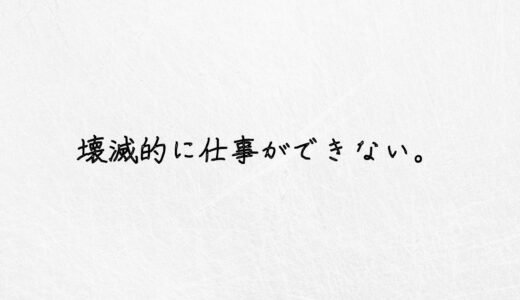 壊滅的に仕事ができない。